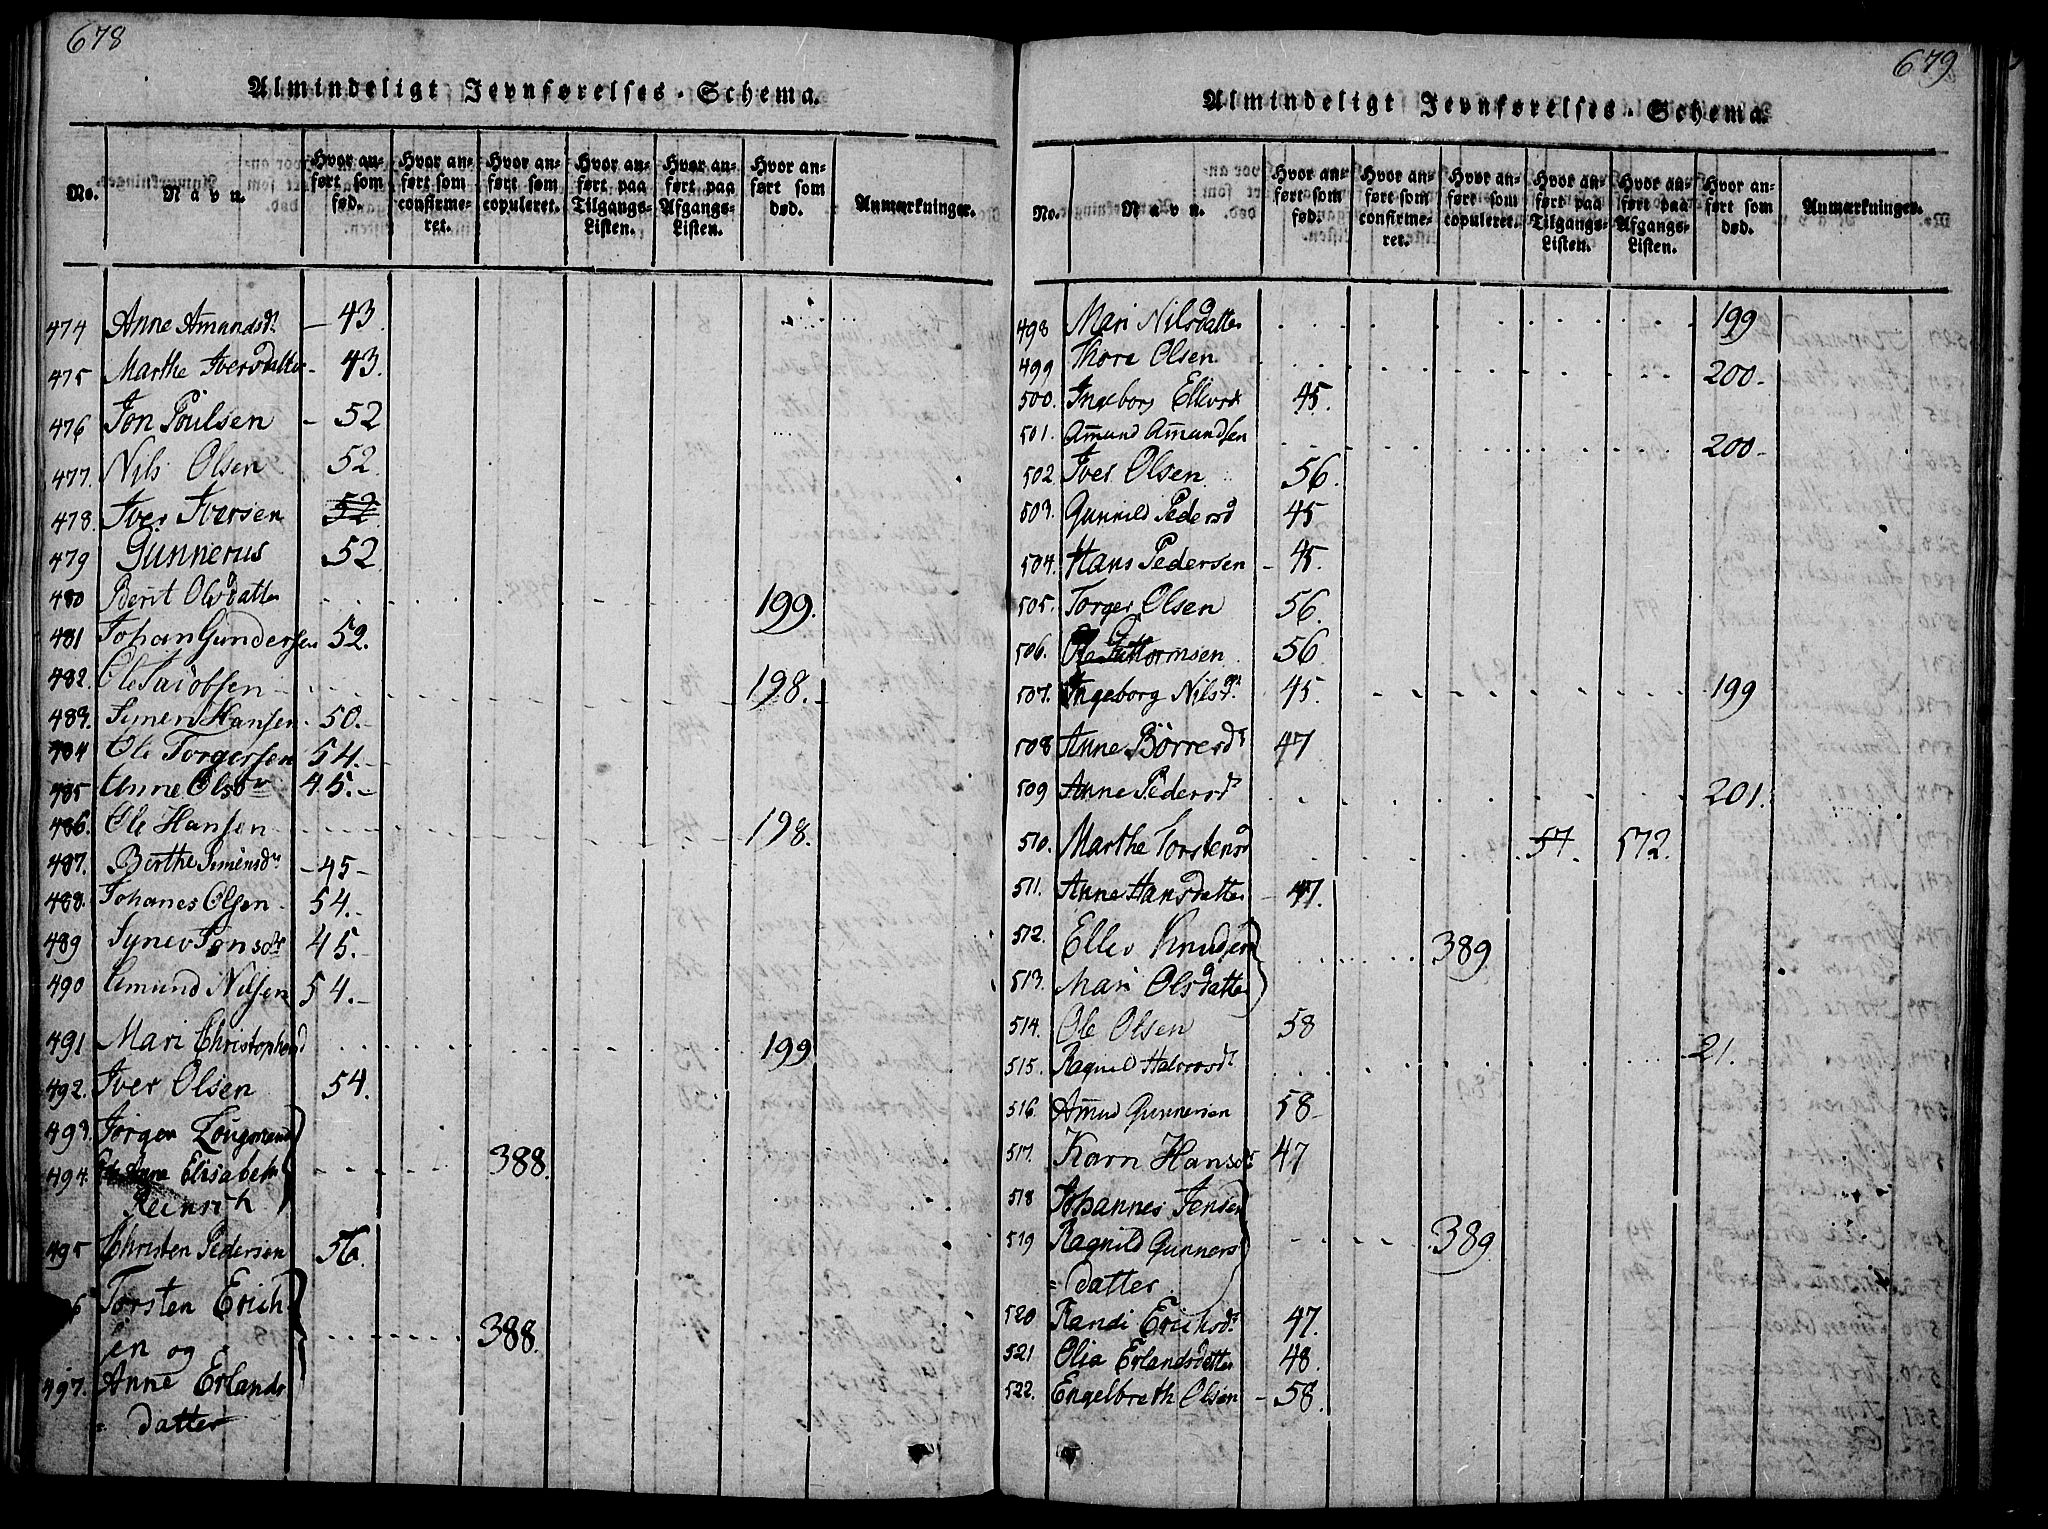 678
Almindeligt Jevnførelses-Schema.
No. Navn. Hvor anført som fød. Hvor anført som confirmeret. Hvor anført som copuleret. Hvor anført paa Tilgangs-Listen. Hvor anført paa Afgangs-Listen. Hvor anført som død. Anmærkninger.
474 Anne Amundsd. - 43.
475 Marthe Iversdatter - 43.
476 Jon Poulsen - 52
477. Nils Olsen 52.
478. Iver Iversen 52.
479 Gunnerus 52
480 Berit Olsdatter 199.
481 Johan Gundersen 52.
482. Ole Jacobsen 198.
483. Simen Hansen 50.
484 Ole Torgersen 54.
485 Anne Olsdr 45.
486. Ole Hansen 198.
487. Berthe Simensdr - 45 -
488. Johanes Olsen 54.
489 Synev Jonsdr 45.
490 Amund Nilsen 54.
491 Mari Christophersd 199
492. Iver Olsen 54.
493. Jørgen
494. Anne Elisabeth 388.
Reinsch
495 Christen Pedersen 56.
Torsten Erich-
sen og 388.
497. Anne Erlands
datter
679
Almindeligt Jevnførelses-Schema.
No. Navn. Hvor anført som fød. Hvor anført som confirmeret. Hvor anført som copuleret. Hvor anført paa Tilgangs-Listen. Hvor anført paa Afgangs-Listen. Hvor anført som død. Anmærkninger.
498 Mari Nilsdatter 199
499 Thore Olsen 200.
500. Ingeborg 45.
501. Amund Amundsen 200
502. Iver Olsen 56.
503. Gunnild Pedersd 45
504. Hans Pedersen - 45.
505. Torger Olsen 56.
506. Ole Guttormsen 56
507. Ingeborg Nilsdr. 45. 199
508 Anne Börresdr 47
509 Anne Pedersdr 201.
510. Marthe Torstensd 57. 572.
511. Anne Hansdatter - 47.
512. Ellev Knudsen 389
513. Mari Olsdatter
514. Ole Olsen 58
515. Ragnild Halvorsdr 21.
516. Amund Gunnersen 58
517. Karn Hansdr 47
518 Johannes Jensen
519 Ragnild Gunners 389
datter
520 Randi Erichsdr 47.
521 Olia Erlandsdatter 48.
522. Engelbreth Olsen - 58.